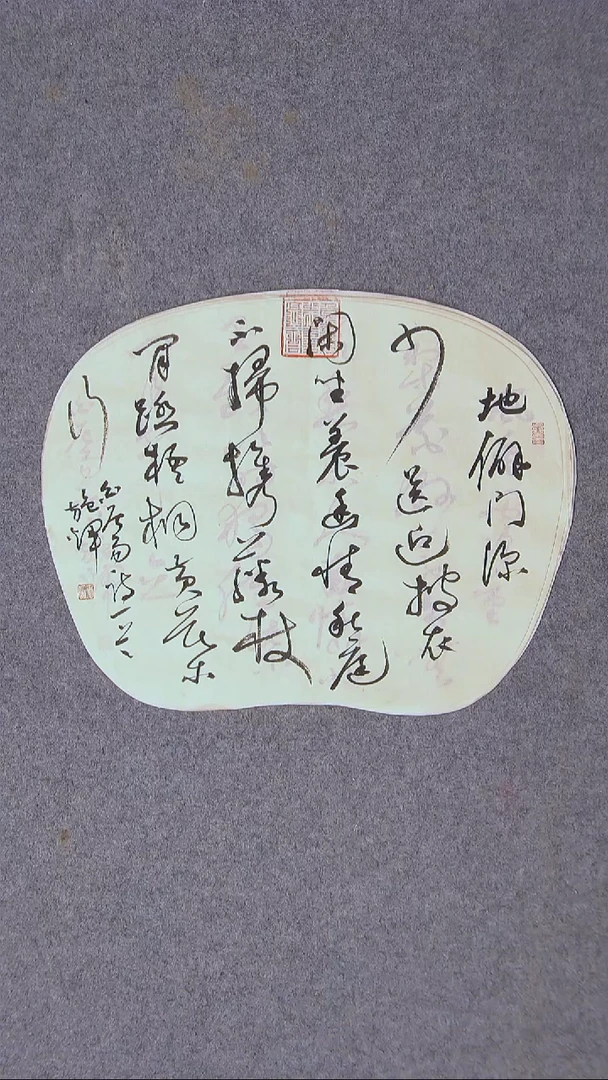 地僻门深
少送迎披衣
闲坐养幽情秋庭
不掃携藤杖
闲踏梧桐黄葉
行
白居易诗一首
施輝